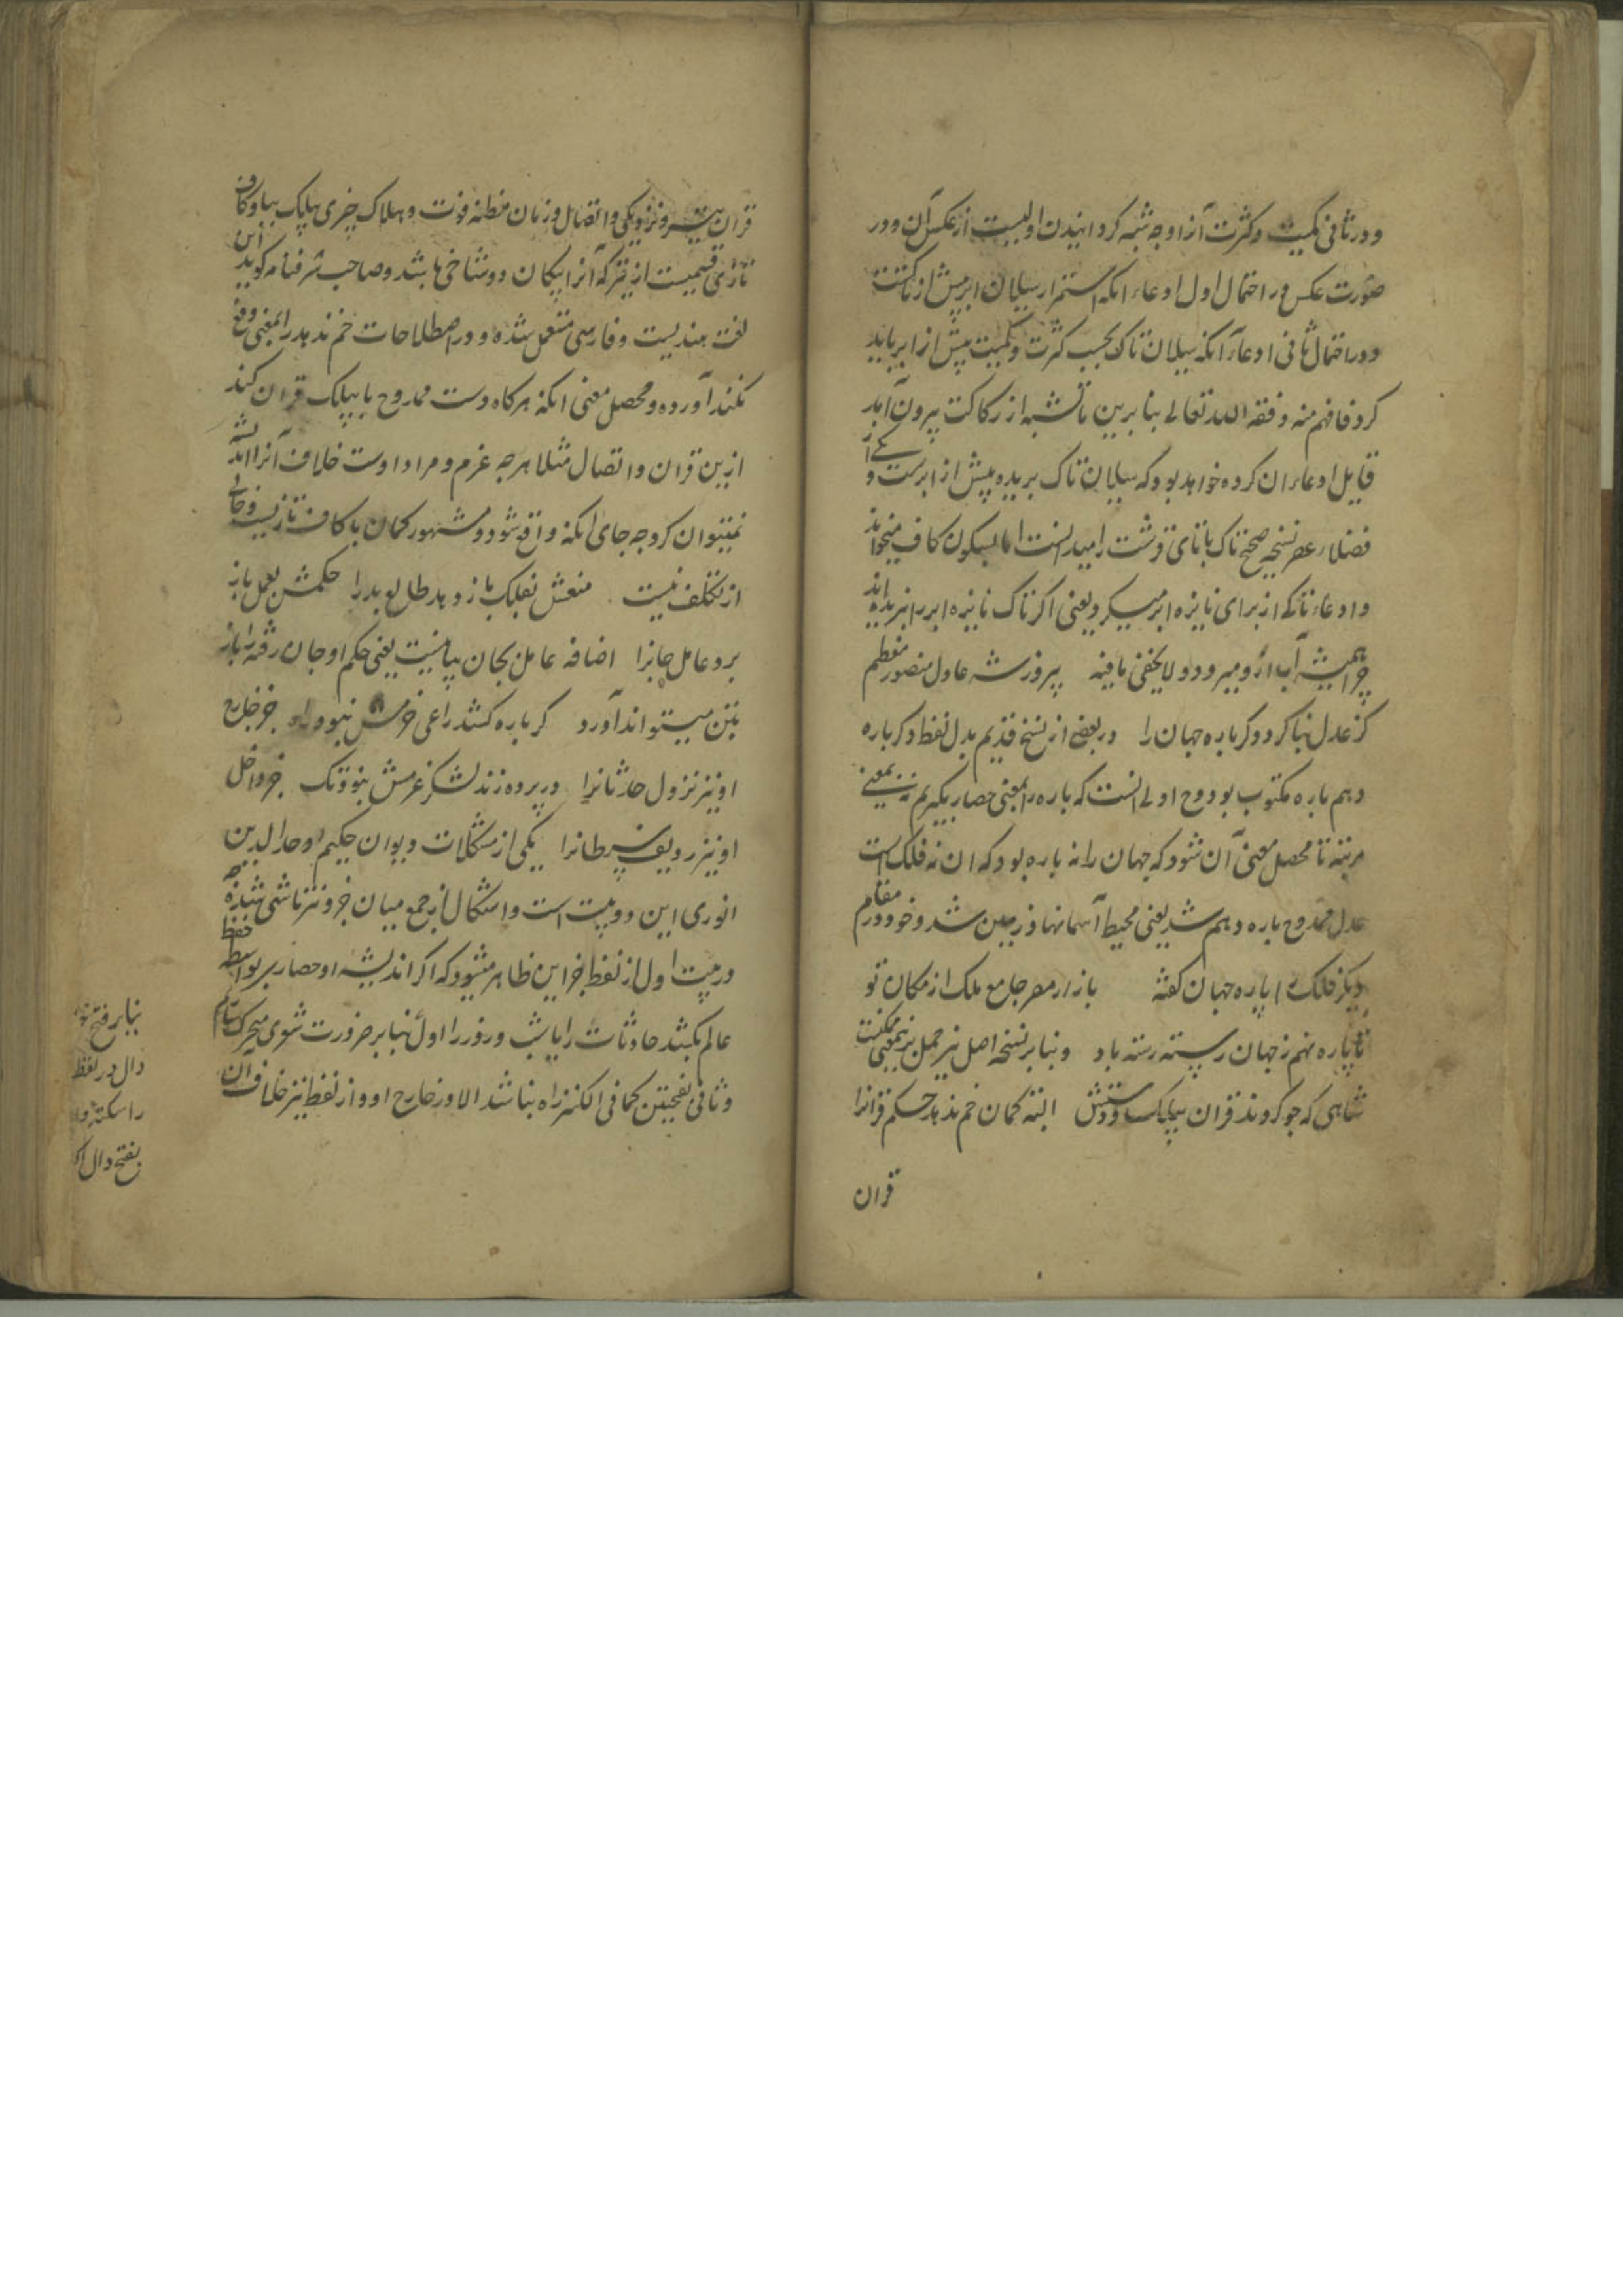 و در ثانی کمیت و کثرت آنرا وجه شبه کردانیدن اولیست از عکس آن و در
صورت عکس در احتمال اول ادعاء انکه استمرار سیلان ابر بیش از تاکست
و در احتمال ثانی ادعاء آنکه سیلان تاک بحسب کثرت و کمیت بیش از ابر باید
کرد فافهم منه وفقه الله تعالی بنابرین تا تشبه از رکاکت بیرون آید
قایل ادعاء ان کرده خواهد بود که سیلان تاک بریده بیش از ابرست و
فضلاء عصر نسخه صحیح تاک با تای قرشت را میدانست اما بسکون کاف میخواند
و ادعاء تاکی از برای نایزه ابر میکرد یعنی اکر تاک نایزه ابر را نبریده اند
چرا همیشه آب ازو میرود و لا یخفی ما فیه پیروز شه عادل منصور معظم
کز عدل بنا کرد دکر باره جهان را در بعضی از نسخ قدیم بدل لفظ دکر باره
دهم باره مکتوب بود وح اولی انست که باره را بمعنی حصار بکیریم نه بمعنی
مرتبه تا محصل معنی آن شود که جهان را نه باره بود که ان نه فلک است
عدل ممدوح باره دهم شد یعنی محیط آسمانها و زمین شد و خود در مقام
دیکر فلک را باره جهان کفته بازار مصر جامع ملک از مکان تو
تا باره نهم ز جهان رسته رسته باد و بنا بر نسخه اصل نیز حمل بر بمعنی ممکنست
شاهی که چو کردند قران بیلک و دستش البته کمان خم ندهد حکم قرانرا
قران
قران پیشه و نزدیکی و اتصال و زمان مظنه فوت و هلاک چیزی بیلک بیا و کاف
تازی قسمیست از تیر که آنرا پیکان دو شاخی باشد و صاحب شرفنامه کوید این
لغت هندیست و فارسی مستعمل شده و در اصطلاحات خم ندهد را بمعنی دفع
نکند آورده و محصل معنی انکه هرکاه دست ممدوح با بیلک قران کند
ازین قران و اتصال مثلا هر چه عزم و مراد اوست خلاف آنرا اندیشه
نمیتوان کرد چه جای انکه واقع شود و مشهور کمان با کاف تازیست و خالی
از تکلف نیست منعش بفلک باز دهد طالع بد را حکمش بعمل باز
برد عامل جانرا اضافه عامل بجان بیانیست یعنی حکم او جان رفته را باز
بتن میتواند آورد کر باره کشد راعی حزمش نبود راه جز خارج
او نیز نزول حدثانرا در پرده زند لشکر عزمش نبود تک جز داخل
او نیز ردیف سرطانرا یکی از مشکلات دیوان حکیم اوحد الدین
انوری این دو بیت است و اشکال از جمع میان جز و نیز ناشی شده چه
در بیت اول از لفظ جز این ظاهر میشود که اکر اندیشه او حصار بر بواسطه حفظ
عالم بکشد حادثات را یابشب و روز را اول بنا بر ضرورت شعری متحرک بسته ام
و ثانی بفتحتین کما فی الکنز راه نباشد الا در خارج او و از لفظ نیز خلاف ان
بنا بر فتح
دال در لفظ
را سکته
بفتح دال